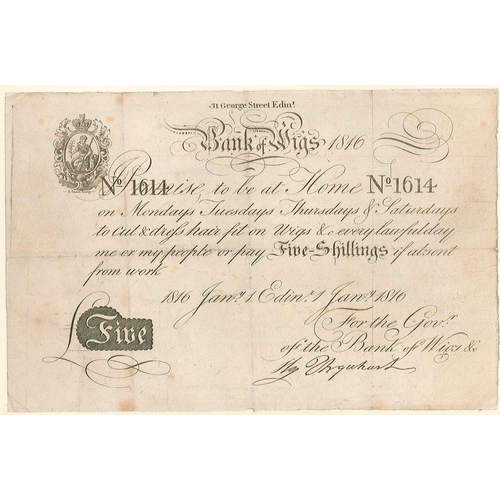 31 George Street Edinr.
Bank of Wigs 1816
No 1614 Promise, to be at Home No 1614
on Mondays Tuesdays Thursdays & Saturdays
to cut & dress hair fit on Wigs &c every lawful day
me or my people or pay Five-Shillings if absent
from work
1816 Jany. 1 Edinr. 1 Jany. 1816
£ Five
For the Govr.
of the Bank of Wigs &c
Urquhart